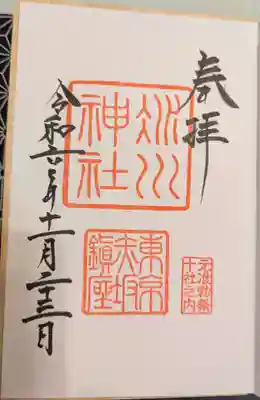 奉拝
氷川
神社
東京
赤坂
鎮座
元准勅祭
十社之内
令和六年十一月二十三日